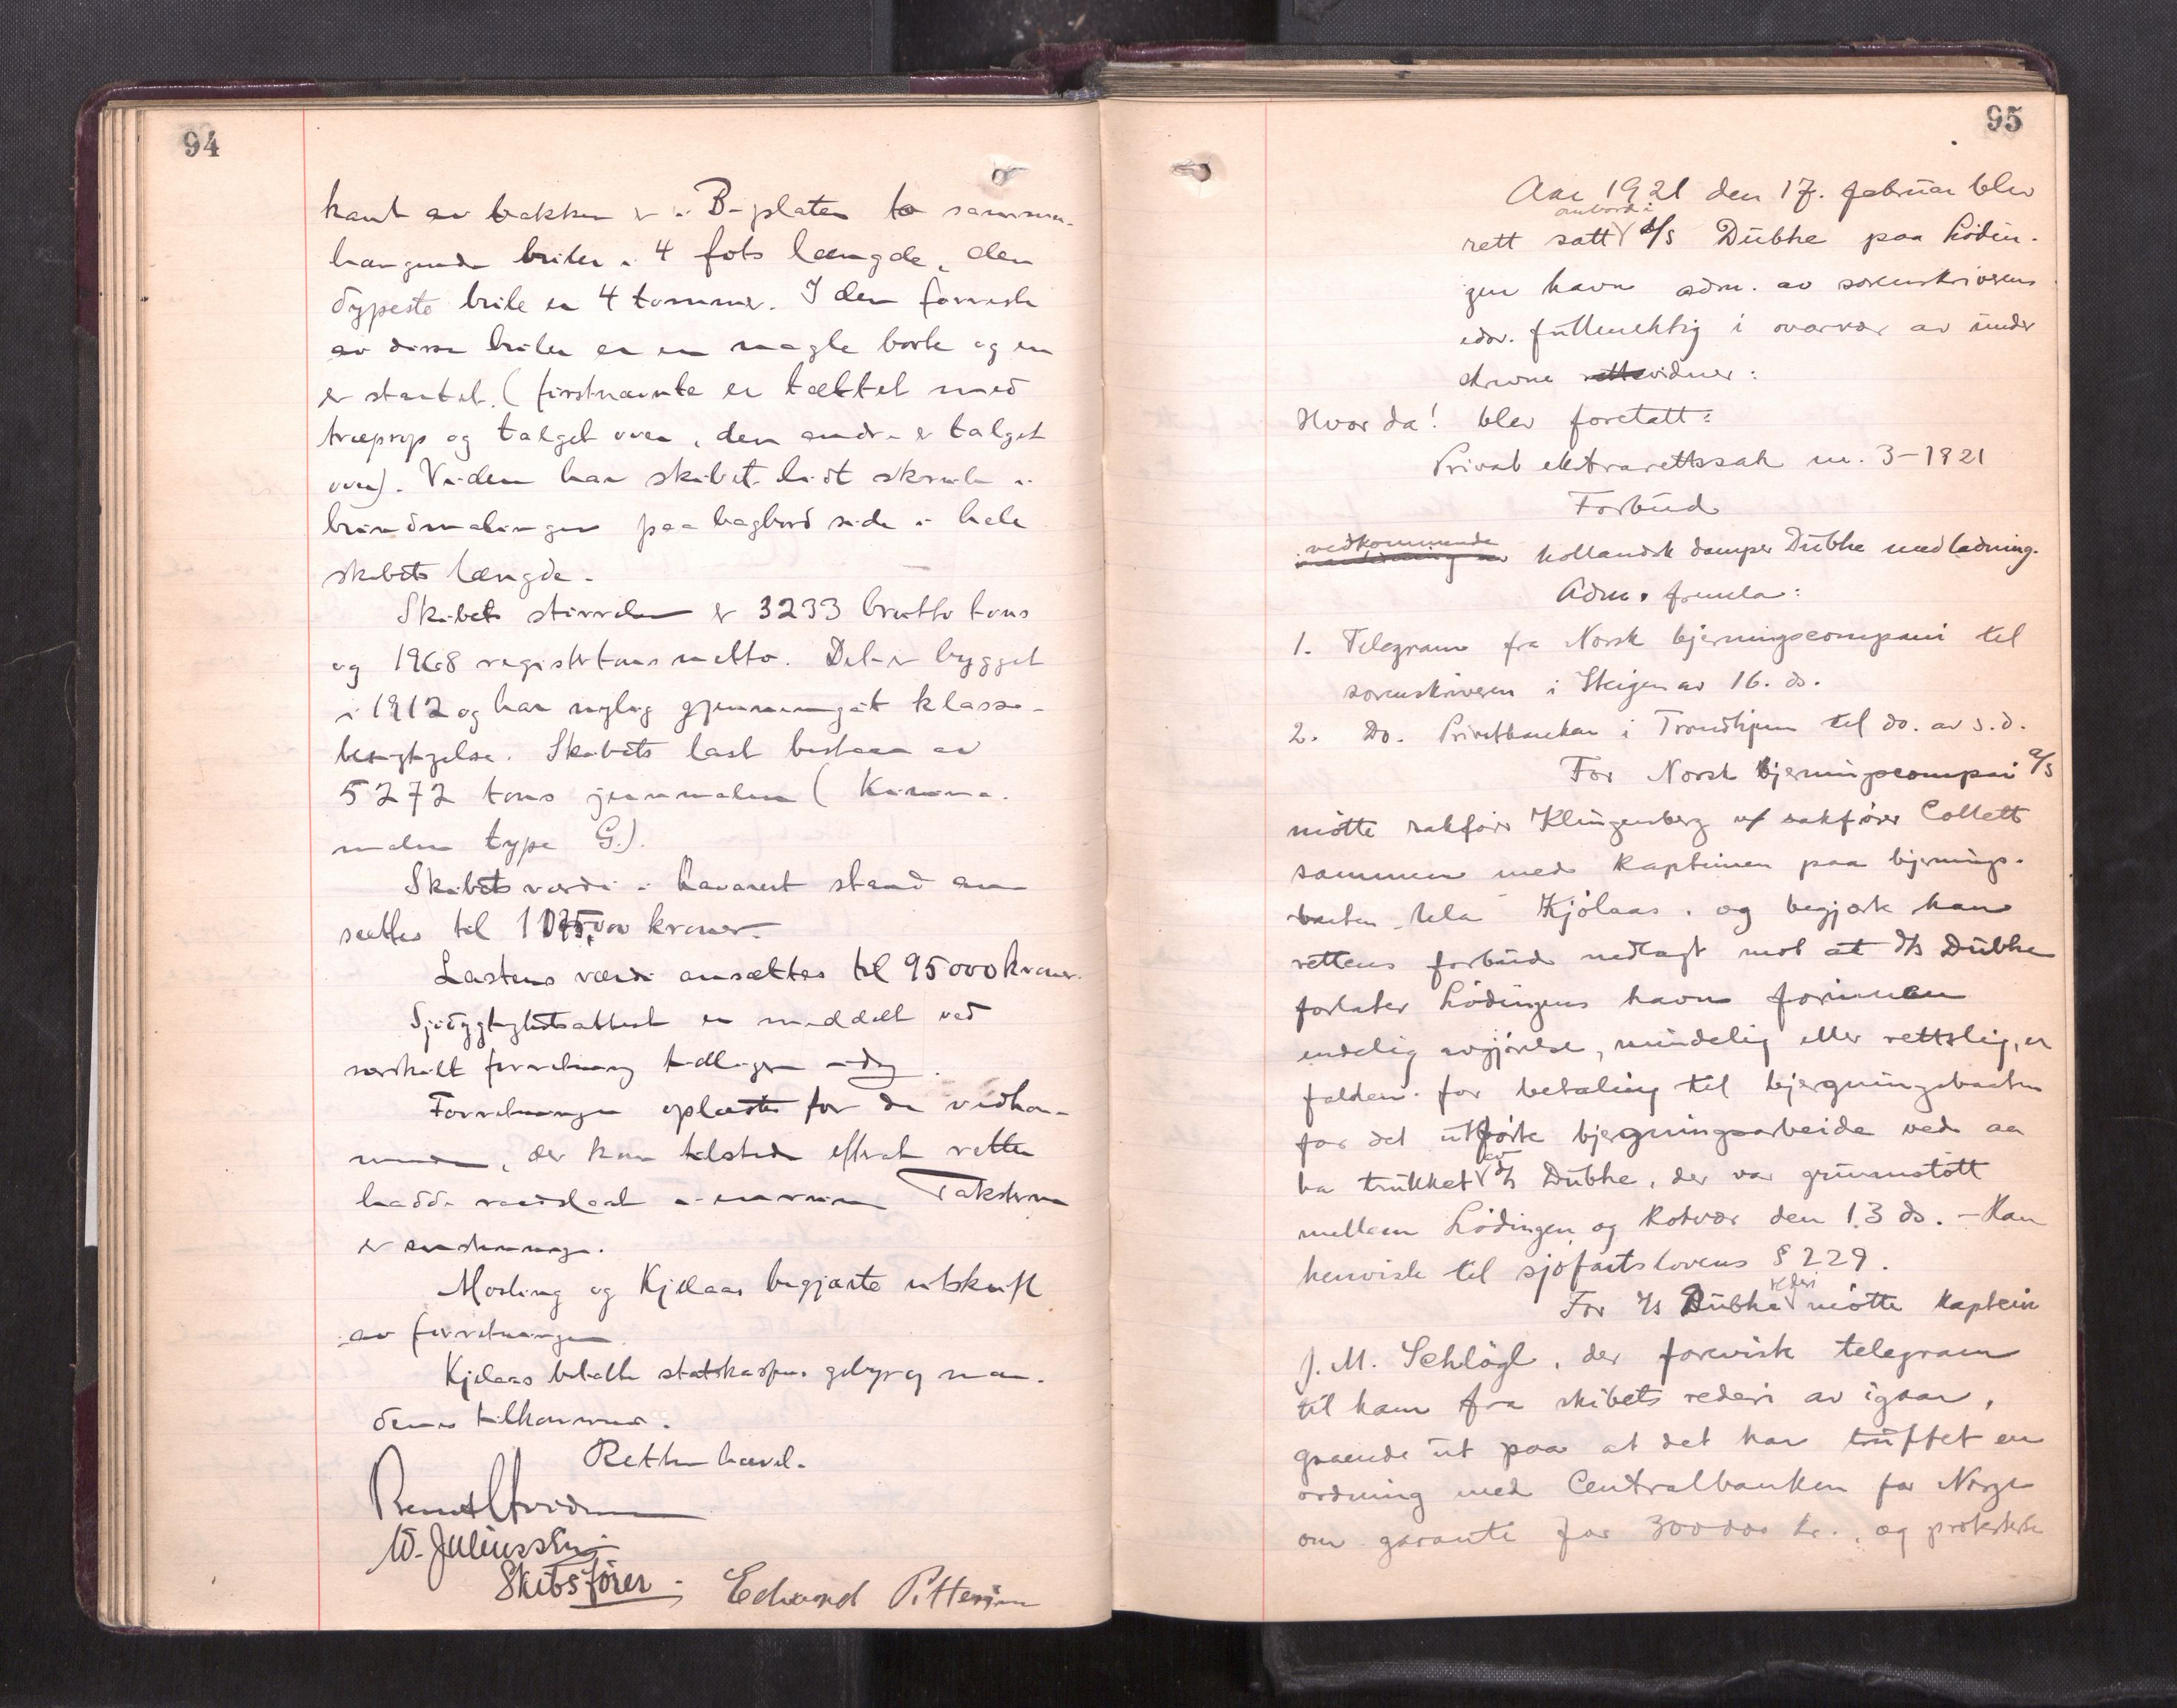 94
kant av bakken er i B-platen to sammen-
hængende buler i 4 fots længde, den
dypeste bule er 4 tommer. I den forreste
av disse buler er en nagle borte og en
er startet. (førstnævnte er tættet med
træprop og talget over, den andre er talget
over). Videre har skibet lidt skrub i
bundmalingen paa bagbord side i hele
skibets længde.
Skibets størrelse er 3233 brutto tons
og 1968 registertons netto. Det er bygget
i 1912 og har nylig gjennemgåt klasse-
besigtigelse. Skibets last bestaar av
5272 tons jernmalm (Kiruna-
malm type G.).
Skibets værdi i havarert stand an
sættes til kroner.
Lastens værdi ansættes til 95000 kroner.
Sjødygtighetsattest er meddelt ved
særskilt forretning tidligere idag.
Forretningen oplæstes for de vedkom-
mende, der kom tilstede efterat retten
hadde raadslaat i enrum. Taksterne
er enstemmige.
Mosling og Kjelaas begjærte utskrift
av forretningen.
Kjelaas betalte statskassens gebyr og mæn-
denes tilkommende.
Retten hævet.
W. Juliussen
Skibsfører. Edvard Pettersen
95
Aar 1921 den 17. februar blev
rett satt ombord i d/s Dubhe paa Lødin-
gen havn adm. av sorenskriverens
edsv. fullmektig i overvær av under
skrevne rettsvidner:
Hvor da! blev foretatt:
Privat ekstrarettssak nr. 3-1921
Forbud
vedkommende hollandsk damper Dubhe med ladning.
Adm. fremla:
1. Telegram fra Norsk bjerningscompani til
sorenskriveren i Steigen av 16. ds.
2. Do. Privatbanken i Trondhjem til do. av s.d.
For Norsk Bjerningscompani a/s
møtte sakfører Klingenberg v/ sakfører Collett
sammen med kapteinen paa bjernings-
baaten Kjølaas, og begjærte han
rettens forbud nedlagt mot at d/s Dubhe
forlater Lødingens havn forinnen
endelig avgjørelse, mindelig eller rettslig, er
falden for betaling til bjergningsbaaten
for det utførte bjergningsarbeide ved aa
ha trukket av d/s Dubhe, der var grunnstøtt
mellem Lødingen og Rotvær den 13 ds. - Han
henviste til sjøfartslovens § 229.
For d/s Dubhe rederi møtte kaptein
J. M. Schlögl, der foreviste telegram
til ham fra skibets rederi av igaar,
gaaende ut paa at det har truffet en
ordning med Centralbanken for Norge
om garanti for 300000 kr., og protesterte